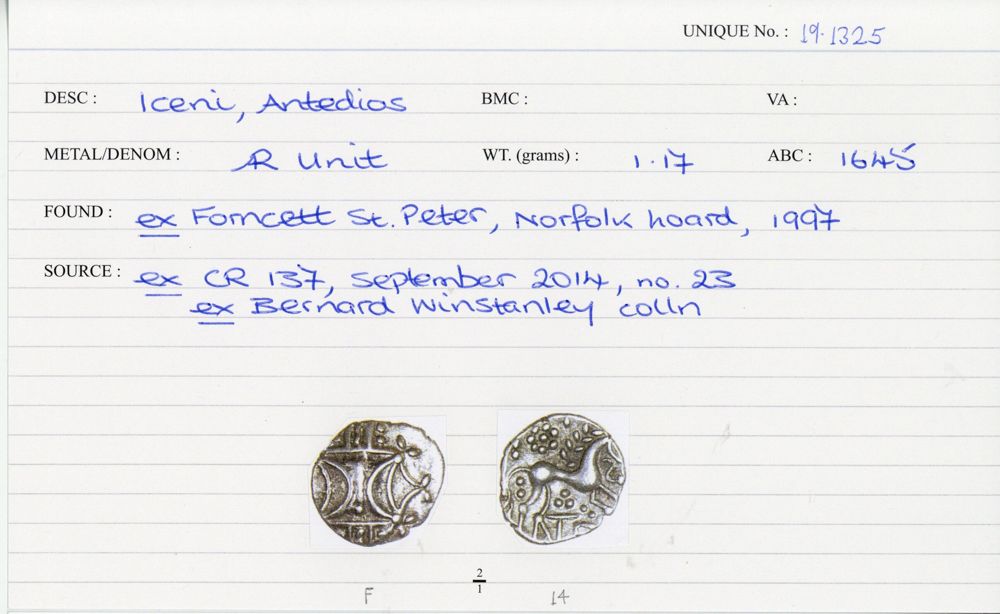 UNIQUE No. : 19.1325
DESC : Iceni, Antedios BMC : VA :
METAL/DENOM : AR Unit WT. (grams) : 1.17 ABC : 1645
FOUND : ex Forncett St. Peter, Norfolk hoard, 1997
SOURCE : ex CR 137, September 2014, no. 23
ex Bernard Winstanley colln
2
1
F 14